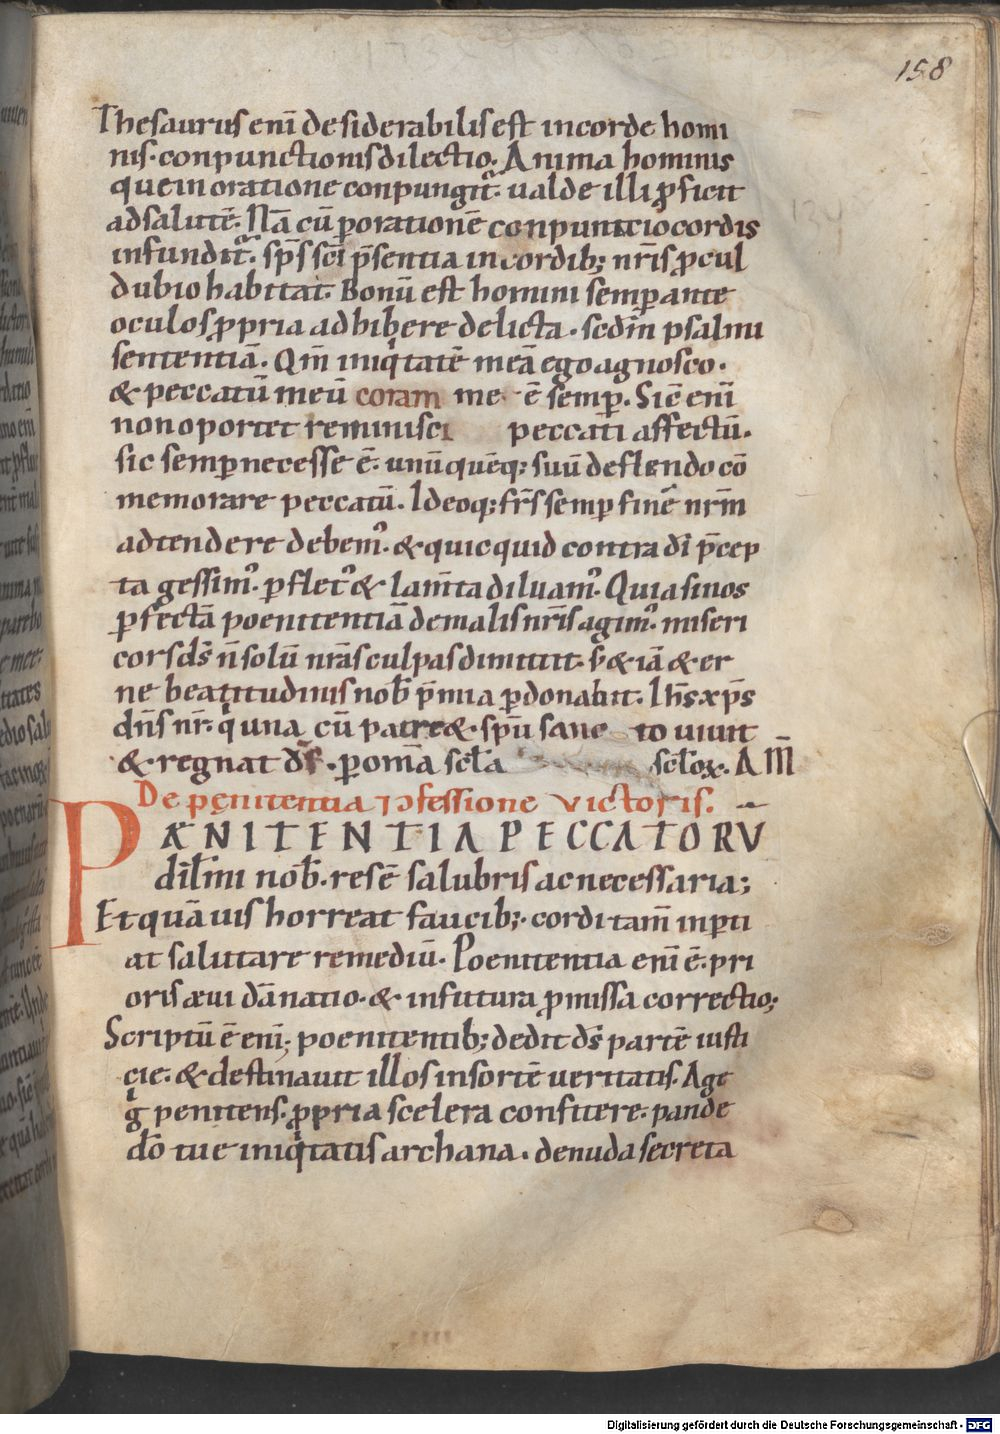 158
Thesaurus eni̅ desiderabilis est in corde homi
nis· conpunctionis dilectio. Anima hominis
que in oratione conpungit᷒· ualde illi ꝓficit
ad salute̅· Na̅ cu̅ ꝑ oratione̅ conpunctio cordis
infundit᷒· sp̅s sc̅i p̅sentia in cordib; nr̅is ꝓcul
dubio habitat· Bonu̅ est homini semꝑ ante
oculos ꝓpria adhibere delicta· sed in̅ psalmi
sententia̅· Qm̅ iniqͥtate̅ mea̅ ego agnosco·
& peccatu̅ meu̅ coram me e̅ semꝑ. Sic̅ eni̅
non oportet reminisci peccati affectu̅.
sic semꝑ necesse e̅· unu̅quēq; suu̅ deflendo co̅
memorare peccatu̅. Ideoq; fr̅s semꝑ fine̅ nr̅m
adtendere debem᷒· & quicquid contra di̅ p̅cep
ta gessim᷒· ꝑ flet᷒ & lam̅ta diluam᷒· Quia si nos
ꝑfecta̅ poenitentia̅ de malis nr̅is agim᷒· miseri
cors ds̅ n̅ solu̅ nr̅as culpas dimittit· s; & ia̅ & er
ne beatitudinis nob̅ p̅mia ꝑdonabit· Ih̅s xp̅s
dn̅s nr̅· qͥ una cu̅ patre & sp̅u sanc to uiuit
& regnat ds̅· ꝑ om̅a scl̅a scl̅oꝝ. AM̅
De pęnitentia ⁊ ↄfessione victoris.
PÆNITENTIA PECCATORV̅
dil̅mi nob̅· res e̅ salubris ac necessaria;
Et qua̅uis horreat faucib;· cordi tam̅ inꝑti
at salutare remediu̅· Poenitentia eni̅ e̅· pri
oris æui da̅natio· & in futura ꝓmissa correctio;
Scriptu̅ e̅ eni̅; poenitentib; dedit ds̅ parte̅ iusti
cię· & destinauit illos in sorte̅ ueritatis. Age
gͥ penitens· ꝓpria scelera confitere· pande
do̅ tue iniqͥtatis archana· denuda secreta
Digitalisierung gefördert durch die Deutsche Forschungsgemeinschaft - DFG